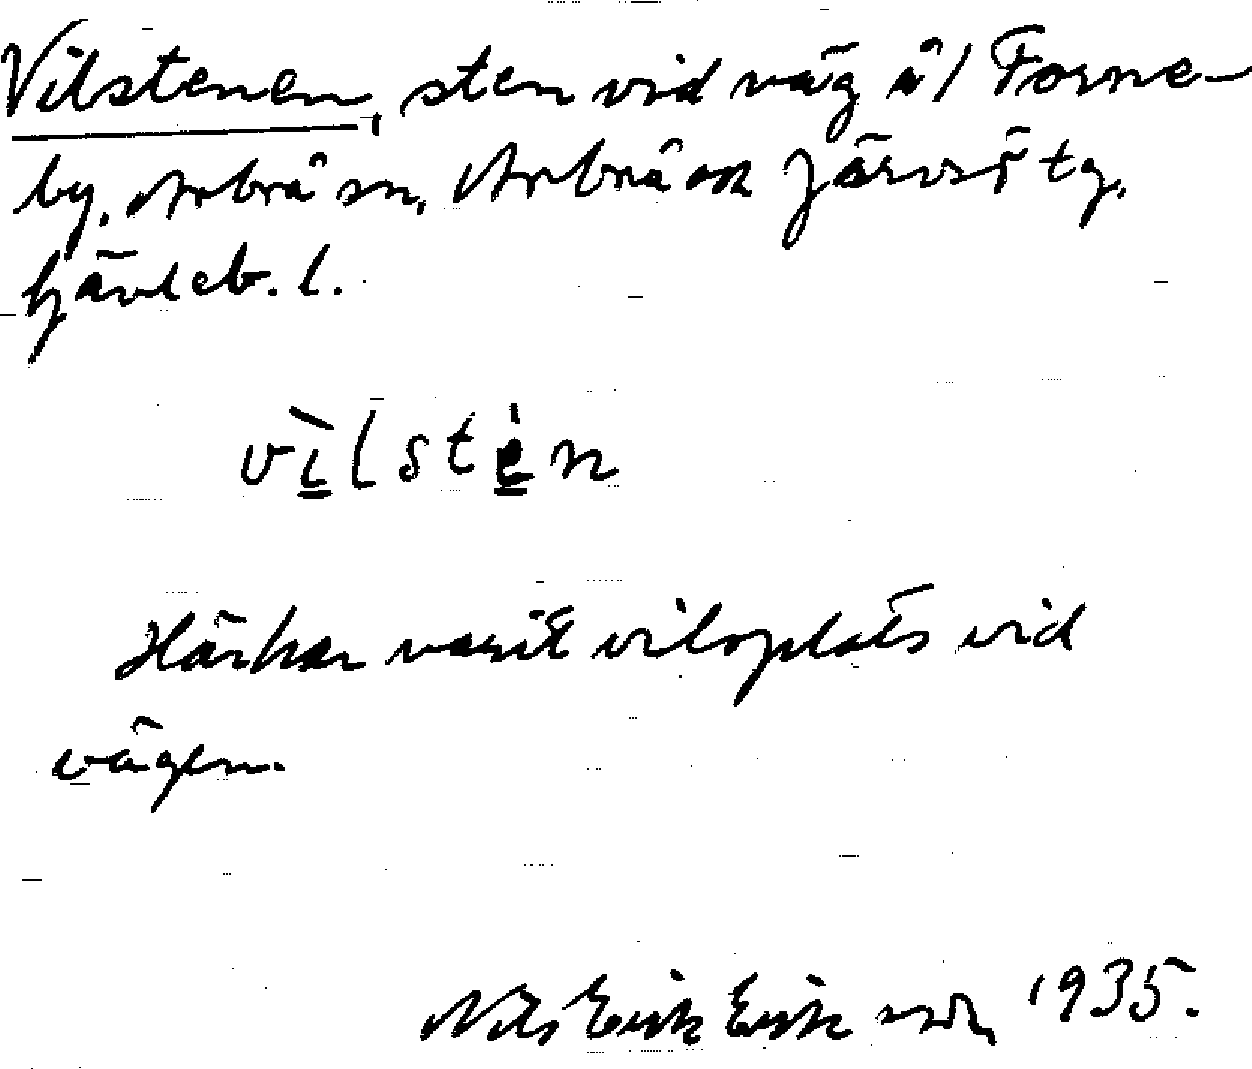 Vilstenen, sten vid väg å/ Forne-
by, Arbrå sn, Arbrå ok Järvsö tg,
Gävleb. l.
vìlstèn
Här har varit viloplats vid
vägen.
Nils Erik Eriksson 1935.